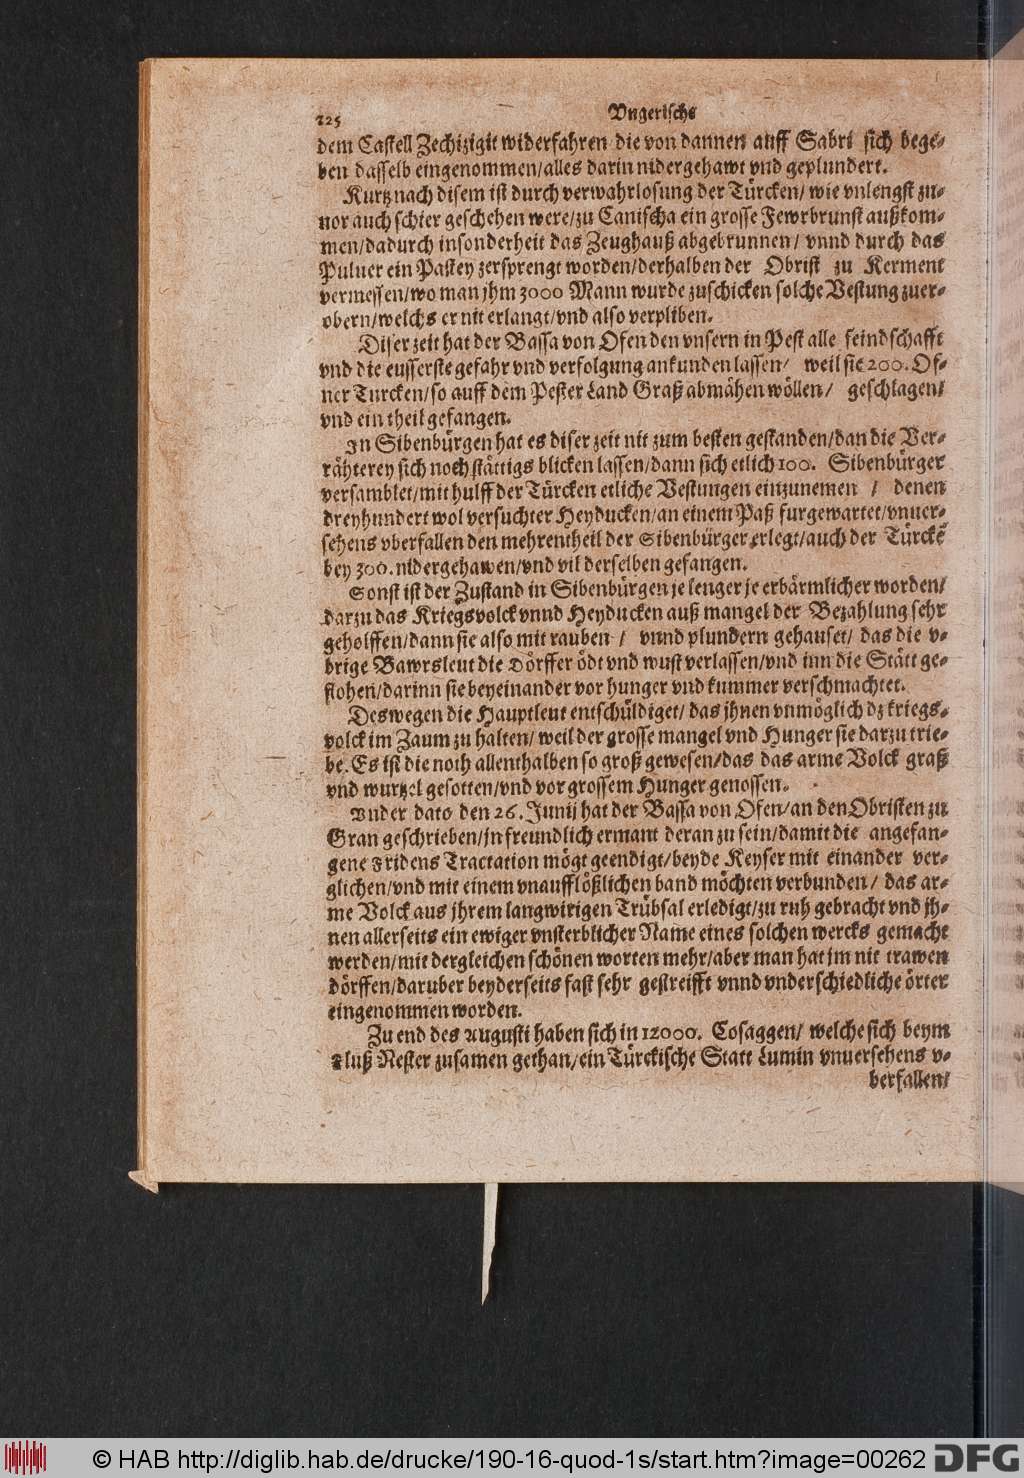 225 Vngerische
dem Castell Zechizigit widerfahren die von dannen auff Sabri sich bege-
ben dasselb eingenommen/alles darin nidergehawt vnd geplundert.
Kurtz nach disem ist durch verwahrlosung der Türcken/ wie vnlengst zu-
uor auch schier geschehen were/zu Canischa ein grosse Fewrbrunst außkom-
men/dadurch insonderheit das Zeughauß abgebrunnen/ vnnd durch das
Puluer ein Pastey zersprengt worden/derhalben der Obrist zu Kerment
vermessen/wo man jhm 3000 Mann wurde zuschicken solche Vestung zuer-
obern/welchs er nit erlangt/vnd also verpliben.
Diser zeit hat der Bassa von Ofen den vnsern in Pest alle feindschafft
vnd die eusserste gefahr vnd verfolgung ankunden lassen/ weil sie 200. Of-
ner Turcken/so auff dem Pester Land Graß abmähen wöllen/ geschlagen/
vnd ein theil gefangen.
In Sibenbürgen hat es diser zeit nit zum besten gestanden/dan die Ver-
rähterey sich noch stättigs blicken lassen/dann sich etlich 100. Sibenbürger
versamblet/mit hulff der Türcken etliche Vestungen einzunemen / denen
dreyhundert wol versuchter Heyducken/an einem Paß furgewartet/vnuer-
sehens vberfallen den mehrentheil der Sibenbürger erlegt/auch der Türckẽ
bey 300. nidergehawen/vnd vil derselben gefangen.
Sonst ist der Zustand in Sibenbürgen je lenger je erbärmlicher worden/
darzu das Kriegsvolck vnnd Heyducken auß mangel der Bezahlung sehr
geholffen/dann sie also mit rauben / vnnd plundern gehauset/ das die v-
brige Bawrsleut die Dörffer ödt vnd wust verlassen/vnd inn die Stätt ge-
flohen/darinn sie beyeinander vor hunger vnd kummer verschmachtet.
Deswegen die Hauptleut entschüldiget/ das jhnen vnmöglich dz kriegs-
volck im Zaum zu halten/ weil der grosse mangel vnd Hunger sie darzu trie-
be. Es ist die noth allenthalben so groß gewesen/das das arme Volck graß
vnd wurtzel gesotten/vnd vor grossem Hunger genossen.
Vnder dato den 26. Junij hat der Bassa von Ofen/an den Obristen zu
Gran geschrieben/jn freundlich ermant deran zu sein/damit die angefan-
gene Fridens Tractation mögt geendigt/beyde Keyser mit einander ver-
glichen/vnd mit einem vnaufflößlichen band möchten verbunden/ das ar-
me Volck aus jhrem langwirigen Trübsal erledigt/zu ruh gebracht vnd jh-
nen allerseits ein ewiger vnsterblicher Name eines solchen wercks gemacht
werden/mit dergleichen schönen worten mehr/aber man hat jm nit trawen
dörffen/daruber beyderseits fast sehr gestreifft vnnd vnderschiedliche örter
eingenommen worden.
Zu end des Augusti haben sich in 12000. Cosaggen/ welche sich beym
Fluß Nester zusamen gethan/ein Türckische Statt Lumin vnuersehens v-
berfallen/
© HAB http://diglib.hab.de/drucke/190-16-quod-1s/start.htm?image=00262 DFG